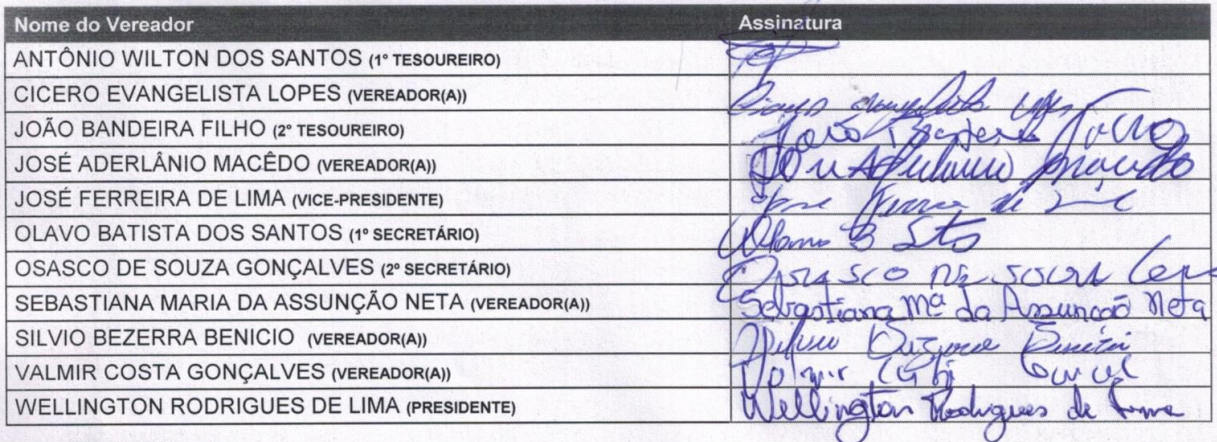 Nome do Vereador Assinatura
ANTÔNIO WILTON DOS SANTOS (1º TESOUREIRO)
CICERO EVANGELISTA LOPES (VEREADOR(A)) Lopes
JOÃO BANDEIRA FILHO (2º TESOUREIRO) João Bandeira Filho
JOSÉ ADERLÂNIO MACÊDO (VEREADOR(A)) José Aderlanio Macedo
JOSÉ FERREIRA DE LIMA (VICE-PRESIDENTE) Jose Ferreira de
OLAVO BATISTA DOS SANTOS (1º SECRETÁRIO) Olavo B Sts
OSASCO DE SOUZA GONÇALVES (2º SECRETÁRIO) Osasco de souza
SEBASTIANA MARIA DA ASSUNÇÃO NETA (VEREADOR(A)) Sebastiana Mª da Assunção Neta
SILVIO BEZERRA BENICIO (VEREADOR(A)) Silvio Bezerra Benicio
VALMIR COSTA GONÇALVES (VEREADOR(A)) Valmir
WELLINGTON RODRIGUES DE LIMA (PRESIDENTE) Wellington Rodrigues de Lima